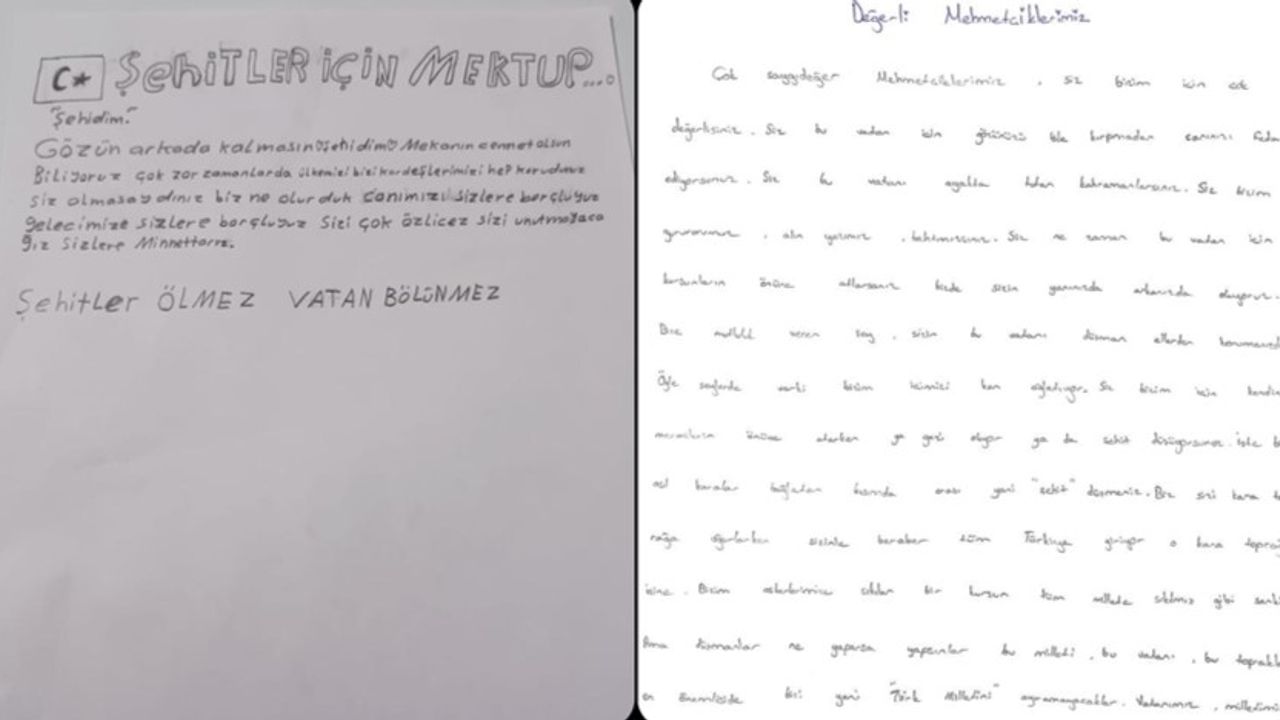 C★ ŞEhiTLER iÇiN MEKTUP....
"Şehidim."
Gözün arkada kalmasın Şehidim Mekanın cennet olsun
Biliyoruz çok zor zamanlarda ülkemizi bizi kardeşlerimizi hep korudunuz
siz olmasaydınız biz ne olurduk canımızı sizlere borçluyuz
gelecimize sizlere borçluyuz sizi çok özlicez sizi unutmayaca
ğız sizlere Minnettarız.
Şehitler ÖLMEZ VATAN BÖLÜNMEZ
Değerli Mehmetciklerimiz
Çok saygıdeğer Mehmetciklerimiz, siz bizim için çok
değerlisiniz. Siz bu vatan için gözünüzü bile kırpmadan canınızı feda
ediyorsunuz. Siz bu vatanı ayakta tutan kahramanlarsınız. Siz bizim
gururumuz, alın yazımız, Siz ne zaman bu vatan için
kurşunların önüne atlarsanız bizde sizin yanınızda arkanızda oluyoruz.
Bize mutluluk veren şey, sizin bu vatanı düşman ellerden
Öyle şeylerde varki bizim içimizi kan ağlatıyor. Siz bizim için
mermilerin önüne atlarken ya gazi oluyor ya da şehit düşüyorsunuz. İşte
asıl yani "şehit" düşmeniz. Biz sizi kara
rağa uğurlarken sizinle beraber tüm Türkiye giriyor o kara
içine. Bizim askerlerimize sıkılan bir kurşun tüm millete sıkılmış gibi
Ama düşmanlar ne yaparsa yapsınlar bu milleti, bu vatanı, bu
en önemliside bizi yani "Türk Milletini" ayıramayacaklar. Vatanımız,